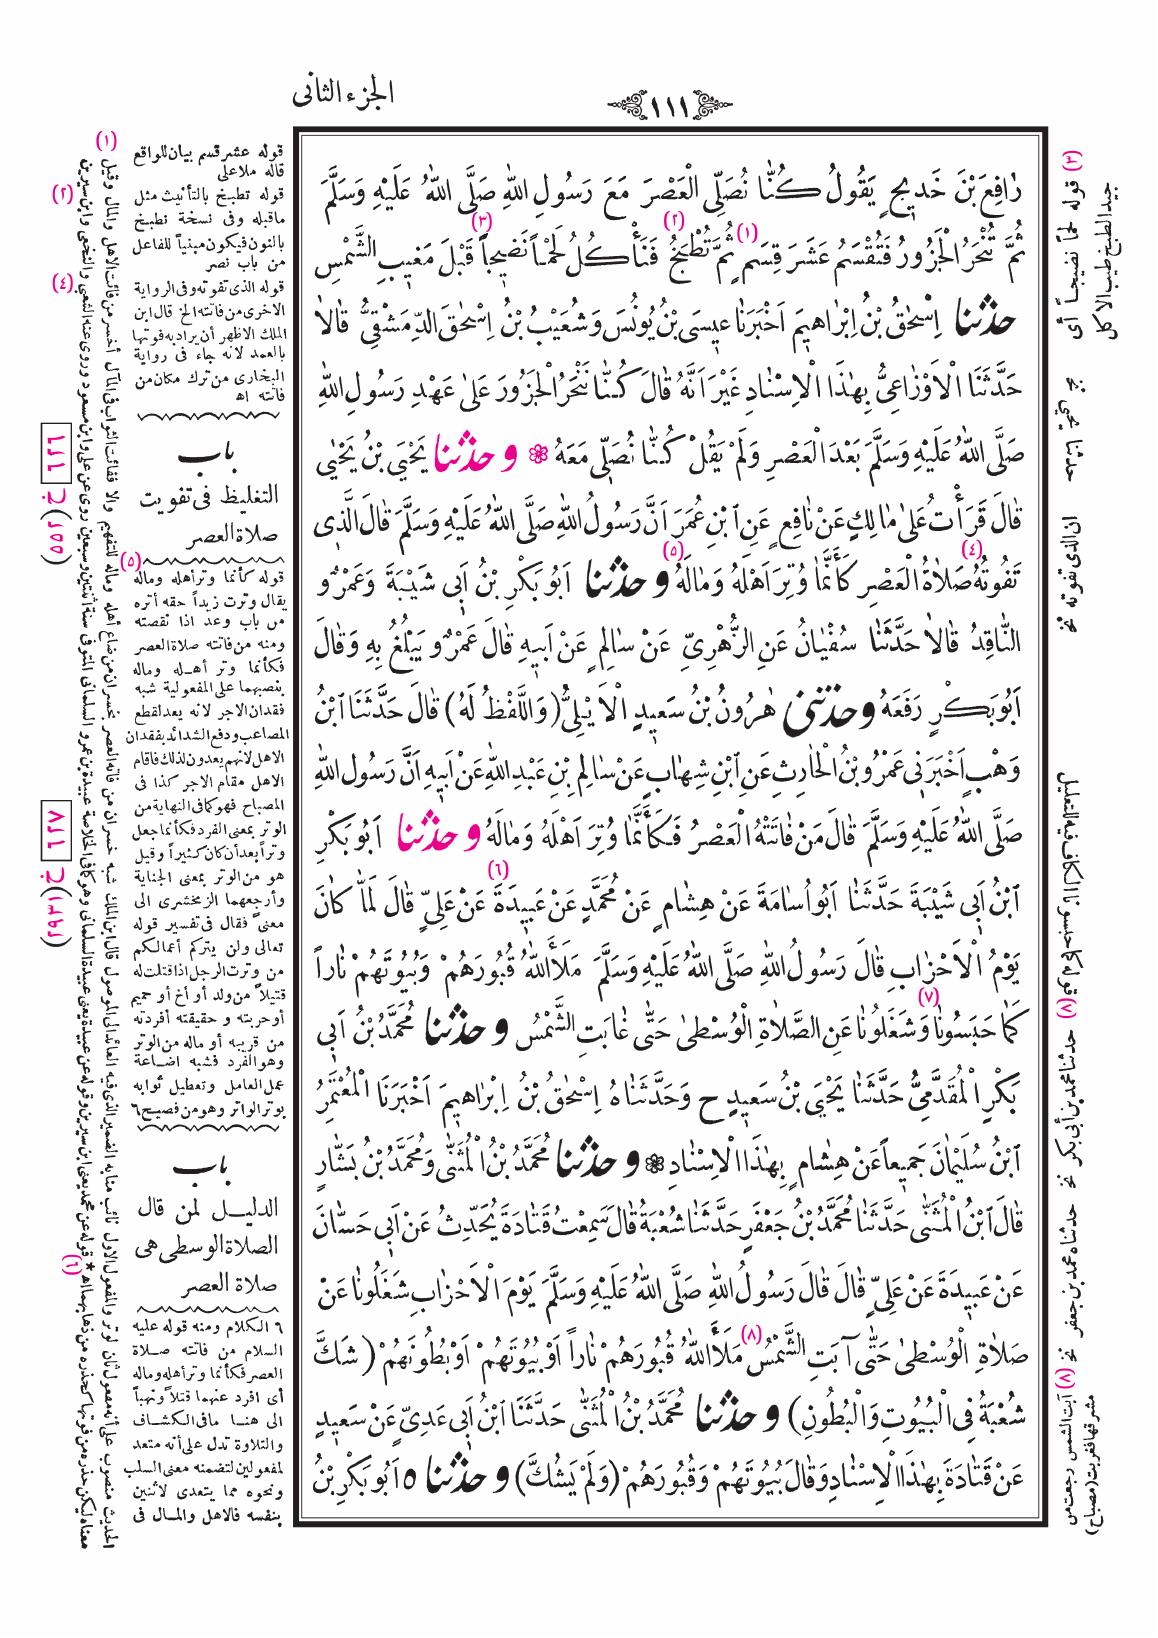 الجزء الثانى
١١١
رَافِعَ بْنَ خَدِيجٍ يَقُولُ كُنَّا نُصَلِّى الْعَصْرَ مَعَ رَسُولِ اللهِ صَلَّى اللهُ عَلَيْهِ وَسَلَّمَ
ثُمَّ تُنْحَرُ الْجَزُورُ فَتُقْسَمُ عَشَرَ قِسَمٍ (١) ثُمَّ تُطْبَخُ (٢) فَنَأْكُلُ لَحْماً نَضِيجاً (٣) قَبْلَ مَغِيبِ الشَّمْسِ
حدثنا اِسْحٰقُ بْنُ اِبْرَاهِيمَ اَخْبَرَنَا عِيسَى بْنُ يُونُسَ وَشُعَيْبُ بْنُ اِسْحٰقَ الدِّمَشْقِىُّ قَالَا
حَدَّثَنَا الْاَوْزَاعِىُّ بِهٰذَا الْاِسْنَادِ غَيْرَ اَنَّهُ قَالَ كُنَّا نَنْحَرُ الْجَزُورَ عَلىٰ عَهْدِ رَسُولِ اللهِ
صَلَّى اللهُ عَلَيْهِ وَسَلَّمَ بَعْدَ الْعَصْرِ وَلَمْ يَقُلْ كُنَّا نُصَلِّى مَعَهُ ۞ و حدثنا يَحْيَى بْنُ يَحْيٰى
قَالَ قَرَأْتُ عَلىٰ مَالِكٍ عَنْ نَافِعٍ عَنِ ابْنِ عُمَرَ اَنَّ رَسُولَ اللهِ صَلَّى اللهُ عَلَيْهِ وَسَلَّمَ قَالَ الَّذِى
تَفُوتُهُ (٤) صَلَاةُ الْعَصْرِ كَأَنَّمَا وُتِرَ اَهْلَهُ وَمَالَهُ (٥) و حدثنا اَبُو بَكْرِ بْنُ اَبِى شَيْبَةَ وَعَمْرٌو
النَّاقِدُ قَالَا حَدَّثَنَا سُفْيَانُ عَنِ الزُّهْرِىِّ عَنْ سَالِمٍ عَنْ اَبِيهِ قَالَ عَمْرٌو يَبْلُغُ بِهِ وَقَالَ
اَبُو بَكْرٍ رَفَعَهُ و حدثنى هٰرُونُ بْنُ سَعِيدٍ الْاَيْلِىُّ (وَاللَّفْظُ لَهُ) قَالَ حَدَّثَنَا ابْنُ
وَهْبٍ اَخْبَرَنِى عَمْرُو بْنُ الْحَارِثِ عَنِ ابْنِ شِهَابٍ عَنْ سَالِمِ بْنِ عَبْدِ اللهِ عَنْ اَبِيهِ اَنَّ رَسُولَ اللهِ
صَلَّى اللهُ عَلَيْهِ وَسَلَّمَ قَالَ مَنْ فَاتَتْهُ الْعَصْرُ فَكَأَنَّمَا وُتِرَ اَهْلَهُ وَمَالَهُ و حدثنا اَبُو بَكْرِ
ابْنُ اَبِى شَيْبَةَ حَدَّثَنَا اَبُو اُسَامَةَ عَنْ هِشَامٍ عَنْ مُحَمَّدٍ عَنْ عَبِيدَةَ (٦) عَنْ عَلِىٍّ قَالَ لَمَّا كَانَ
يَوْمُ الْاَحْزَابِ قَالَ رَسُولُ اللهِ صَلَّى اللهُ عَلَيْهِ وَسَلَّمَ مَلَأَ اللهُ قُبُورَهُمْ وَبُيُوتَهُمْ نَاراً
كَمَا حَبَسُونَا (٧) وَشَغَلُونَا عَنِ الصَّلَاةِ الْوُسْطىٰ حَتّٰى غَابَتِ الشَّمْسُ و حدثنا مُحَمَّدُ بْنُ اَبِى
بَكْرٍ الْمُقَدَّمِىُّ حَدَّثَنَا يَحْيَى بْنُ سَعِيدٍ ح وَحَدَّثَنَاهُ اِسْحٰقُ بْنُ اِبْرَاهِيمَ اَخْبَرَنَا الْمُعْتَمِرُ
ابْنُ سُلَيْمَانَ جَمِيعاً عَنْ هِشَامٍ بِهٰذَا الْاِسْنَادِ ۞ و حدثنا مُحَمَّدُ بْنُ الْمُثَنَّى وَمُحَمَّدُ بْنُ بَشَّارٍ
قَالَ ابْنُ الْمُثَنَّى حَدَّثَنَا مُحَمَّدُ بْنُ جَعْفَرٍ حَدَّثَنَا شُعْبَةُ قَالَ سَمِعْتُ قَتَادَةَ يُحَدِّثُ عَنْ اَبِى حَسَّانَ
عَنْ عَبِيدَةَ عَنْ عَلِىٍّ قَالَ قَالَ رَسُولُ اللهِ صَلَّى اللهُ عَلَيْهِ وَسَلَّمَ يَوْمَ الْاَحْزَابِ شَغَلُونَا عَنْ
صَلَاةِ الْوُسْطىٰ حَتّٰى آبَتِ الشَّمْسُ (٨) مَلَأَ اللهُ قُبُورَهُمْ نَاراً اَوْ بُيُوتَهُمْ اَوْ بُطُونَهُمْ (شَكَّ
شُعْبَةُ فِى الْبُيُوتِ وَالْبُطُونِ) و حدثنا مُحَمَّدُ بْنُ الْمُثَنَّى حَدَّثَنَا ابْنُ اَبِى عَدِىٍّ عَنْ سَعِيدٍ
عَنْ قَتَادَةَ بِهٰذَا الْاِسْنَادِ وَقَالَ بُيُوتَهُمْ وَقُبُورَهُمْ (وَلَمْ يَشُكَّ) و حدثنا ٥ اَبُو بَكْرِ بْنُ
(٣) قوله لحماً نضيجاً أى
جيد الطبخ طيب الاكل
حدثنا يحيى نخ
ان الذى تفوته نخ
(٧) قوله كما حبسونا الكاف فيه للتعليل
حدثنا محمد بن أبى بكر نخ
حدثناه محمد بن جعفر نخ
(٨) آبت الشمس رجعت من
مشرقها فغربت (مصباح)
قوله عشر قسم بيان للواقع
قاله ملا على
قوله تطبخ بالتأنيث مثل
ماقبله وفى نسخة نطبخ
بالنون فيكون مبنياً للفاعل
من باب نصر
قوله الذى تفوته وفى الرواية
الاخرى من فاتته الخ قال ابن
الملك الاظهر أن يراد به فوتها
بالعمد لانه جاء فى رواية
البخارى من ترك مكان من
فاتته اه
باب
التغليظ فى تفويت
صلاة العصر
قوله كأنما وتر أهله وماله
يقال وترت زيداً حقه أتره
من باب وعد اذا نقصته
ومنه من فاتته صلاة العصر
فكأنما وتر أهله وماله
بنصبهما على المفعولية شبه
فقدان الاجر لانه يعد لقطع
المصاعب ودفع الشدائد بفقدان
الاهل لانهم يعدون لذلك فاقام
الاهل مقام الاجر كذا فى
المصباح فهو كما فى النهاية من
الوتر بمعنى الفرد فكأنما جعل
وتراً بعد أن كان كثيراً وقيل
هو من الوتر بمعنى الجناية
وأرجعهما الزمخشرى الى
معنى فقال فى تفسير قوله
تعالى ولن يتركم أعمالكم
من وترت الرجل اذا قتلت له
قتيلاً من ولد أو أخ أو حميم
أو حربته و حقيقته أفردته
من قريبه أو ماله من الوتر
وهو الفرد فشبه اضاعة
عمل العامل وتعطيل ثوابه
بوتر الواتر وهو من فصيح ٦
باب
الدليل لمن قال
الصلاة الوسطى هى
صلاة العصر
٦ الكلام ومنه قوله عليه
السلام من فاتته صلاة
العصر فكأنما وتر أهله وماله
أى افرد عنهما قتلاً ونهباً
الى هنا مافى الكشاف
والتلاوة تدل على أنه متعد
لمفعولين لتضمنه معنى السلب
ونحوه مما يتعدى لاثنين
بنفسه فالاهل والمال فى
(١)
(٢)
(٤)
(٥)
(٦)
٦٢٦
ح (٢٥٥)
٦٢٨